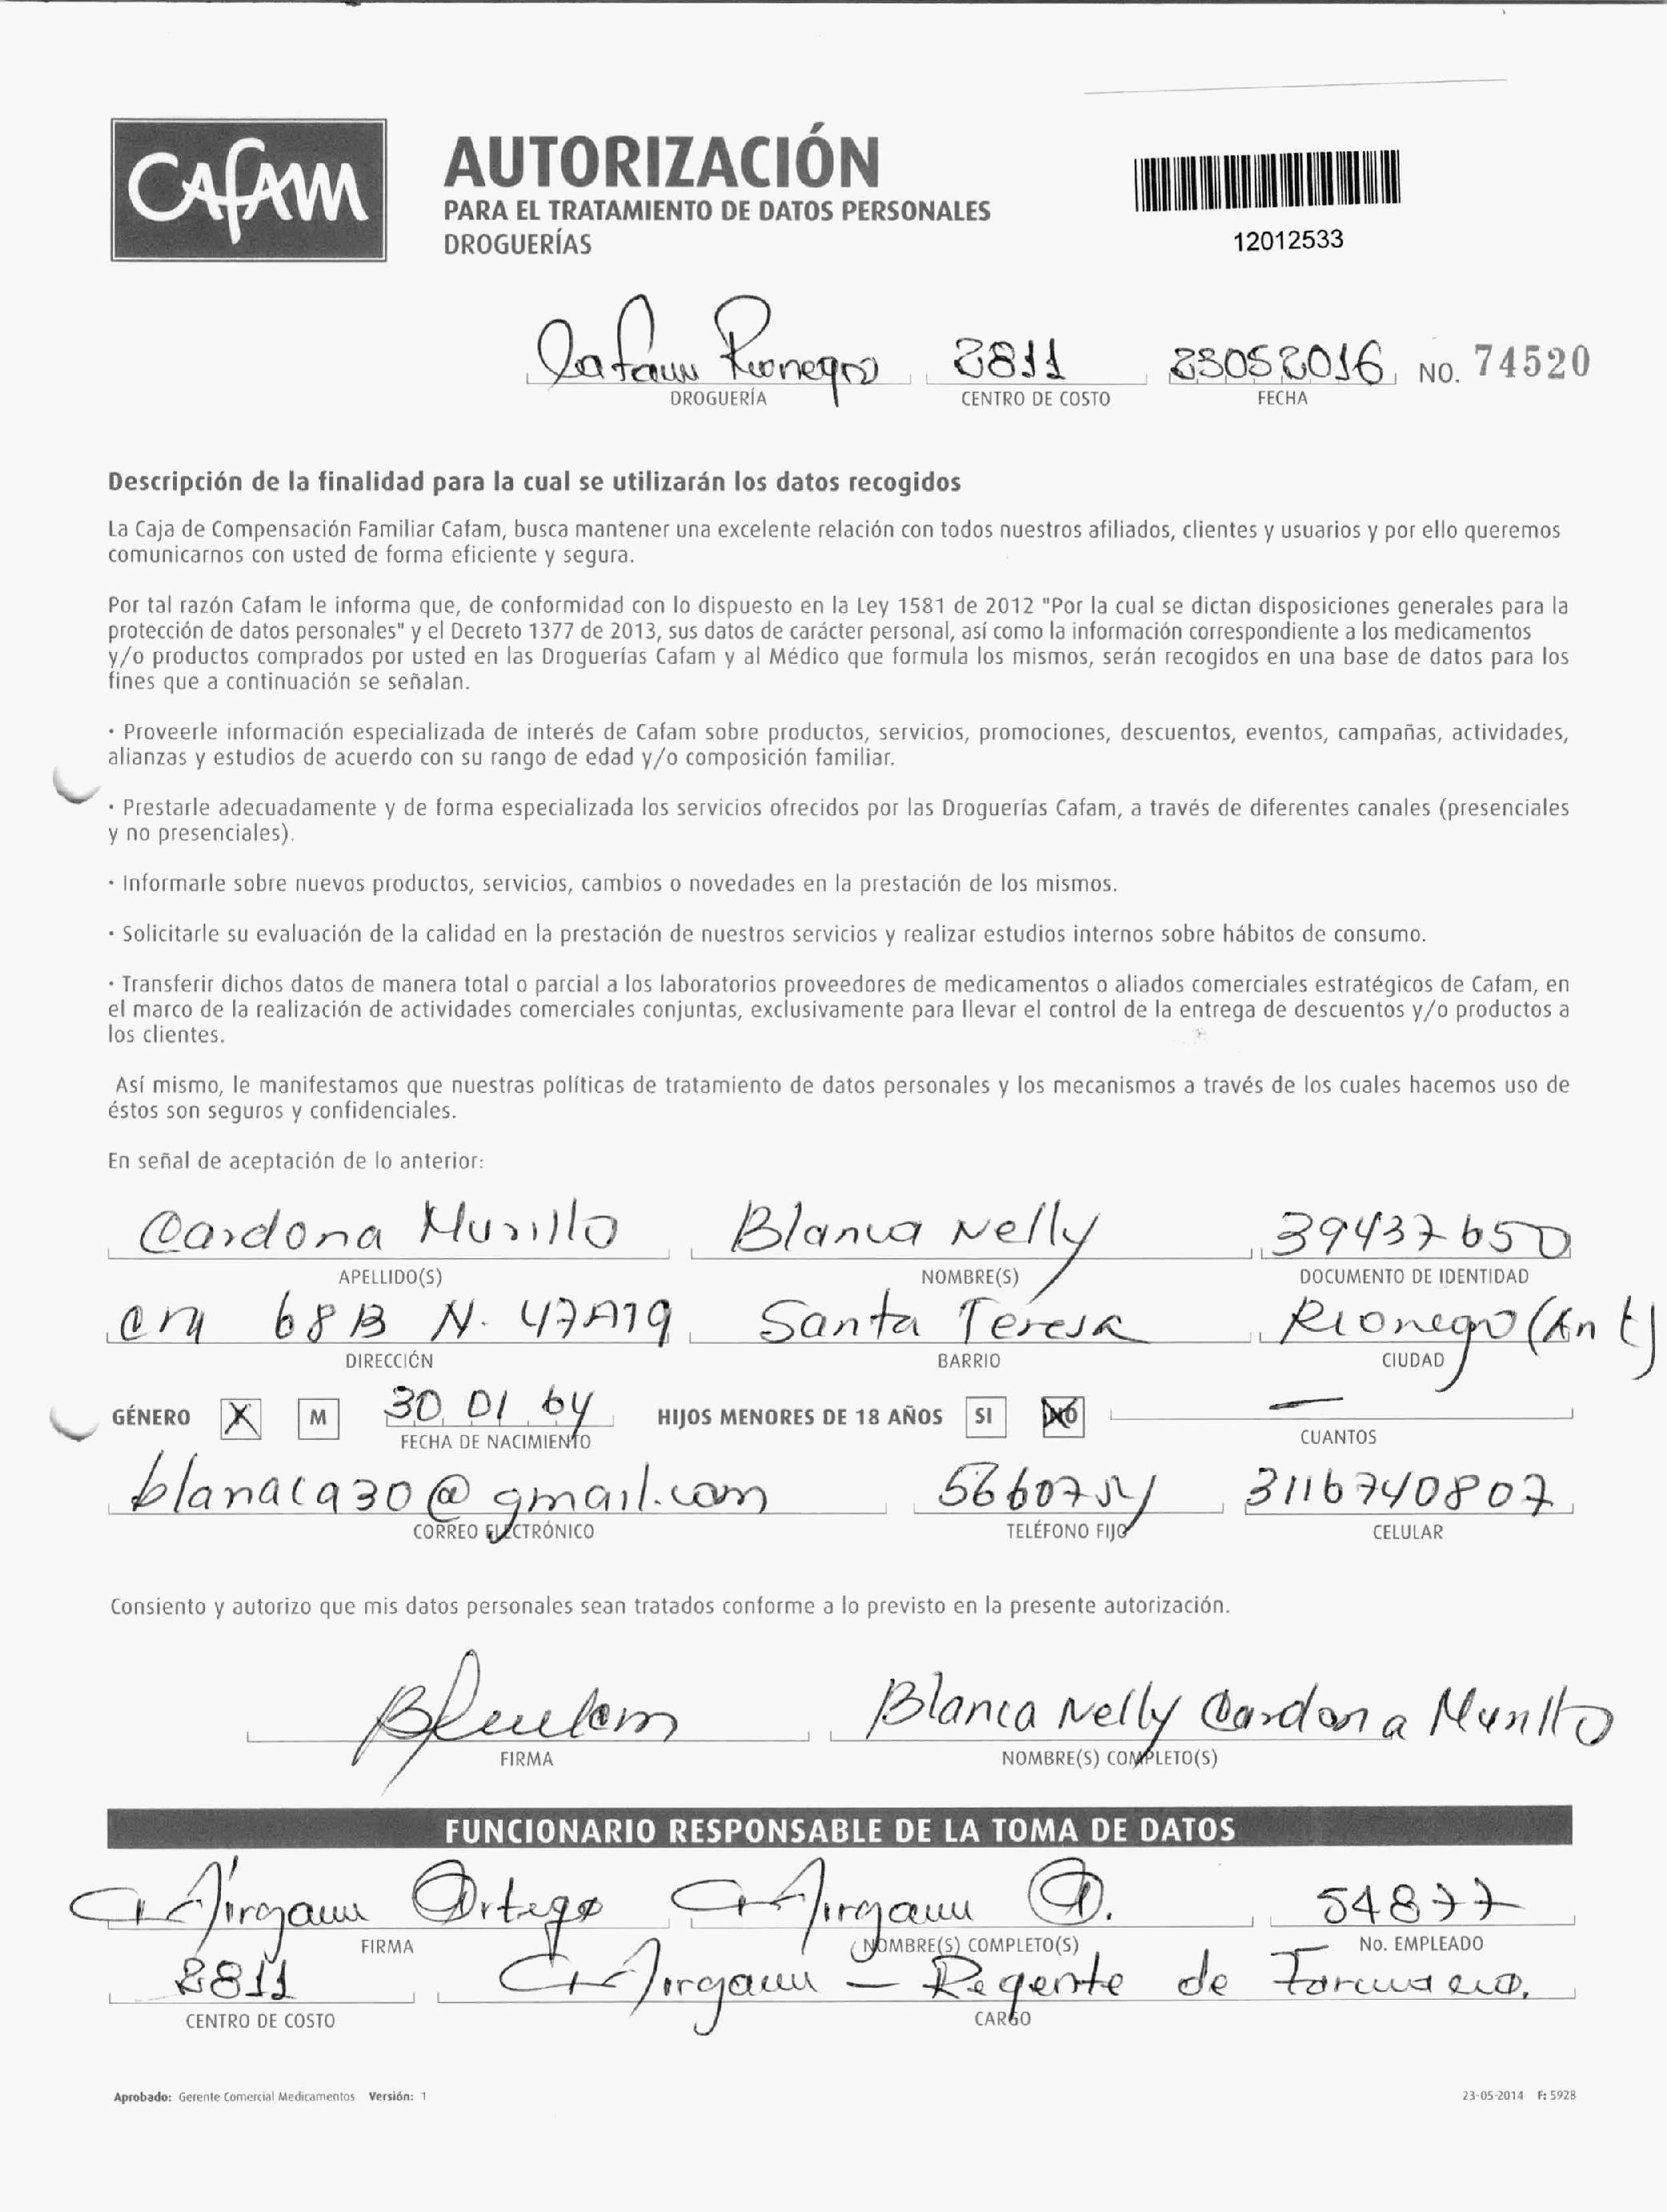 CAFAM
AUTORIZACIÓN
PARA EL TRATAMIENTO DE DATOS PERSONALES
DROGUERÍAS
12012533
Cafam Rionegro 2811 23052016 NO. 74520
DROGUERÍA CENTRO DE COSTO FECHA
Descripción de la finalidad para la cual se utilizarán los datos recogidos
La Caja de Compensación Familiar Cafam, busca mantener una excelente relación con todos nuestros afiliados, clientes y usuarios y por ello queremos
comunicarnos con usted de forma eficiente y segura.
Por tal razón Cafam le informa que, de conformidad con lo dispuesto en la Ley 1581 de 2012 "Por la cual se dictan disposiciones generales para la
protección de datos personales" y el Decreto 1377 de 2013, sus datos de carácter personal, así como la información correspondiente a los medicamentos
y/o productos comprados por usted en las Droguerías Cafam y al Médico que formula los mismos, serán recogidos en una base de datos para los
fines que a continuación se señalan.
· Proveerle información especializada de interés de Cafam sobre productos, servicios, promociones, descuentos, eventos, campañas, actividades,
alianzas y estudios de acuerdo con su rango de edad y/o composición familiar.
· Prestarle adecuadamente y de forma especializada los servicios ofrecidos por las Droguerías Cafam, a través de diferentes canales (presenciales
y no presenciales).
· Informarle sobre nuevos productos, servicios, cambios o novedades en la prestación de los mismos.
· Solicitarle su evaluación de la calidad en la prestación de nuestros servicios y realizar estudios internos sobre hábitos de consumo.
· Transferir dichos datos de manera total o parcial a los laboratorios proveedores de medicamentos o aliados comerciales estratégicos de Cafam, en
el marco de la realización de actividades comerciales conjuntas, exclusivamente para llevar el control de la entrega de descuentos y/o productos a
los clientes.
Así mismo, le manifestamos que nuestras políticas de tratamiento de datos personales y los mecanismos a través de los cuales hacemos uso de
éstos son seguros y confidenciales.
En señal de aceptación de lo anterior:
Cardona Murillo Blanca Nelly 39437650
APELLIDO(S) NOMBRE(S) DOCUMENTO DE IDENTIDAD
68B N. 47A19 Santa Teresa Rionegro (Ant)
DIRECCIÓN BARRIO CIUDAD
GÉNERO X M 30 01 64 HIJOS MENORES DE 18 AÑOS SI NO —
FECHA DE NACIMIENTO CUANTOS
blanaca30@gmail.com 3116740807
CORREO ELECTRÓNICO TELÉFONO FIJO CELULAR
Consiento y autorizo que mis datos personales sean tratados conforme a lo previsto en la presente autorización.
Blanca Nelly Cardona Murillo
FIRMA NOMBRE(S) COMPLETO(S)
FUNCIONARIO RESPONSABLE DE LA TOMA DE DATOS
Ortega 54877
FIRMA NOMBRE(S) COMPLETO(S) No. EMPLEADO
2811 – Regente de Farmacia.
CENTRO DE COSTO CARGO
Aprobado: Gerente Comercial Medicamentos Versión: 1 23-05-2014 F: 5928